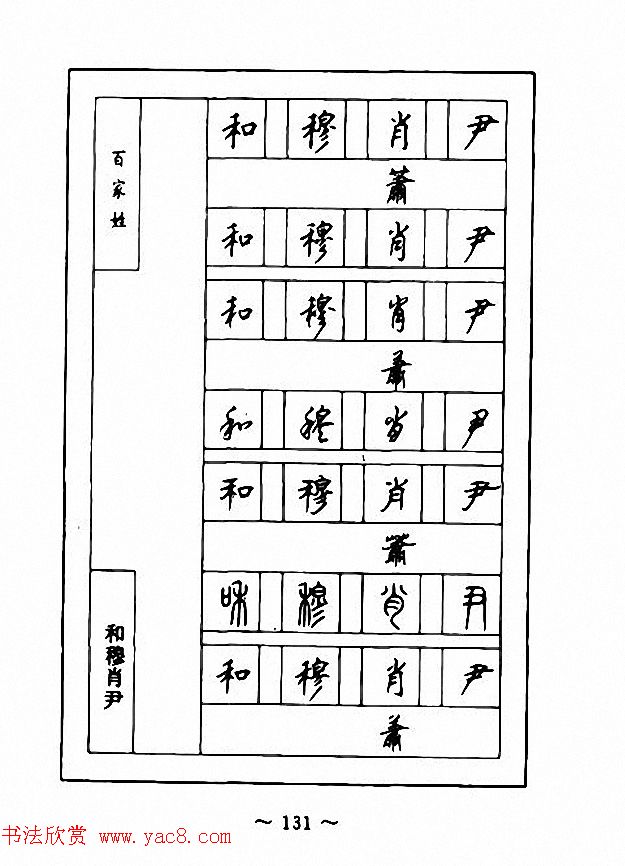 百家姓
和 穆 肖 尹
蕭
和 穆 肖 尹
和 穆 肖 尹
蕭
和 穆 肖 尹
和 穆 肖 尹
蕭
和 穆 肖 尹
和 穆 肖 尹
蕭
和穆肖尹
~ 131 ~
书法欣赏 www.yac8.com